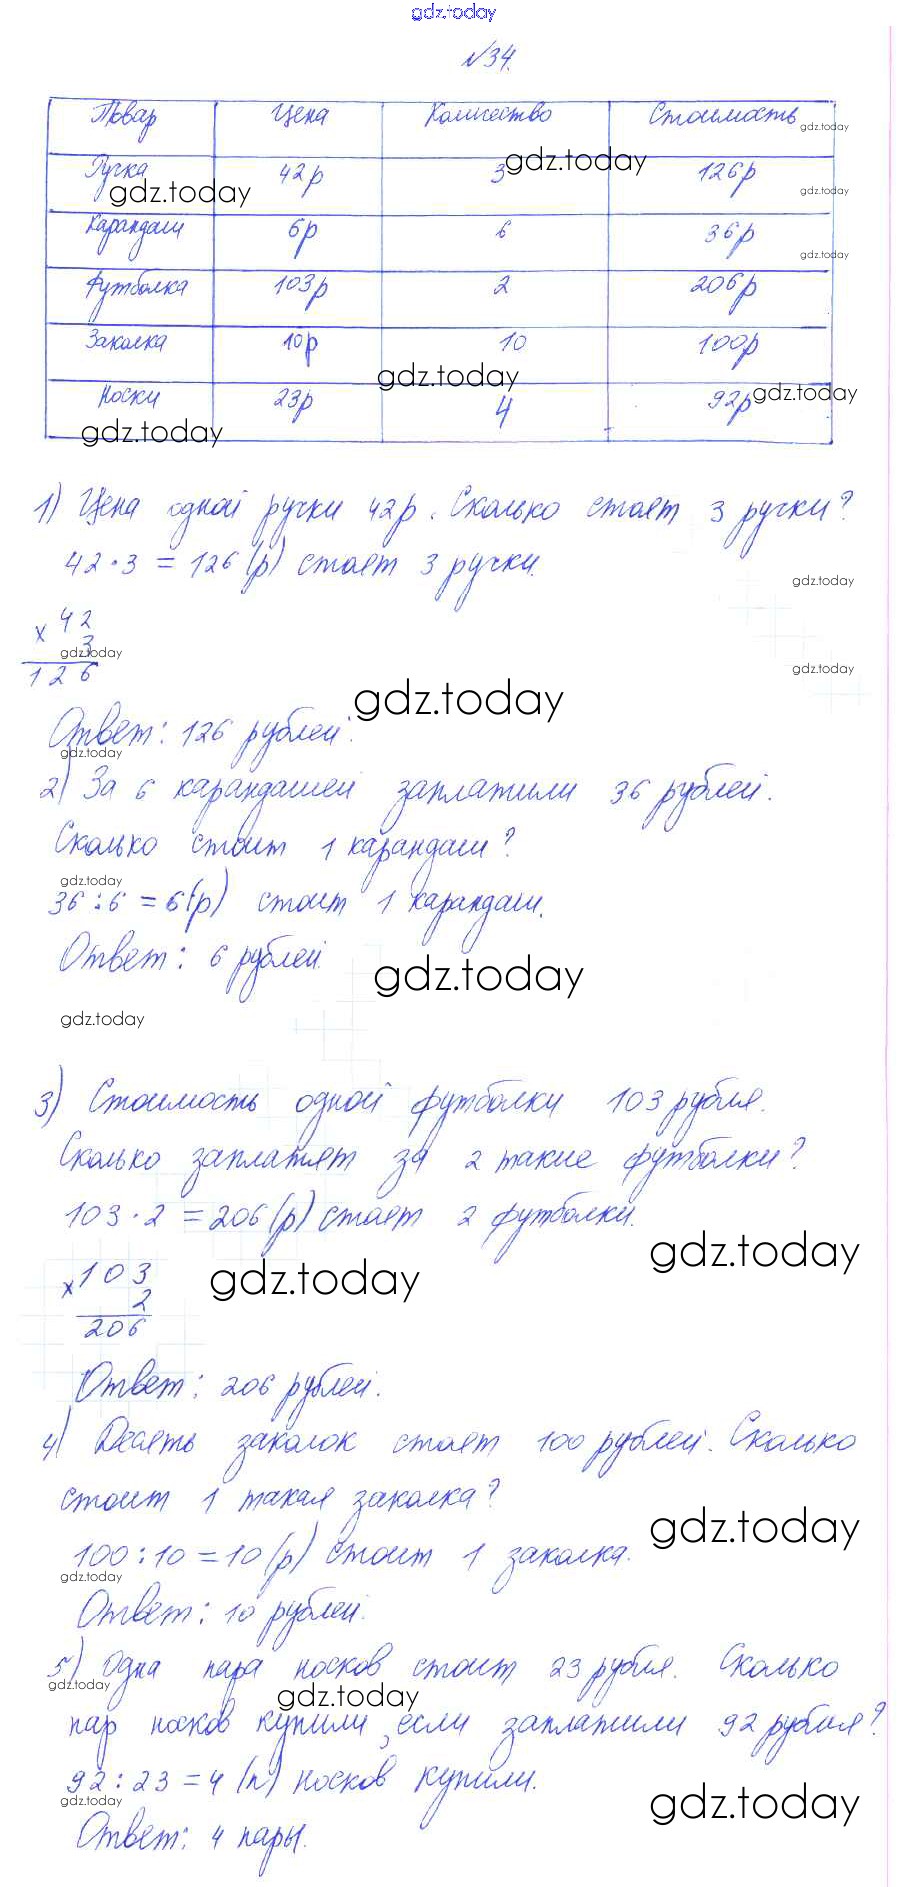 gdz.today
№34.
Товар Цена Количество Стоимость gdz.today
Ручка 42р 3 126р
gdz.today gdz.today gdz.today
Карандаш 6р 6 36р
gdz.today
Футболка 103р 2 206р
Заколка 10р 10 100р
gdz.today
Носки 23р 4 92р gdz.today
gdz.today
1) Цена одной ручки 42р. Сколько стоят 3 ручки?
42·3 = 126 (р) стоят 3 ручки.
gdz.today
× 42
3
gdz.today
126
gdz.today
gdz.today
Ответ: 126 рублей.
gdz.today
2) За 6 карандашей заплатили 36 рублей.
Сколько стоит 1 карандаш?
gdz.today
36:6 = 6(р) стоит 1 карандаш.
Ответ: 6 рублей.
gdz.today
gdz.today
3) Стоимость одной футболки 103 рубля.
Сколько заплатят за 2 такие футболки?
103·2 = 206(р) стоят 2 футболки.
gdz.today
gdz.today
× 103
2
206
Ответ: 206 рублей.
4) Десять заколок стоят 100 рублей. Сколько
стоит 1 такая заколка?
gdz.today
100:10 = 10 (р) стоит 1 заколка.
gdz.today
Ответ: 10 рублей.
5) Одна пара носков стоит 23 рубля. Сколько
gdz.today gdz.today
пар носков купили, если заплатили 92 рубля?
92:23 = 4 (п) носков купили.
gdz.today gdz.today
Ответ: 4 пары.